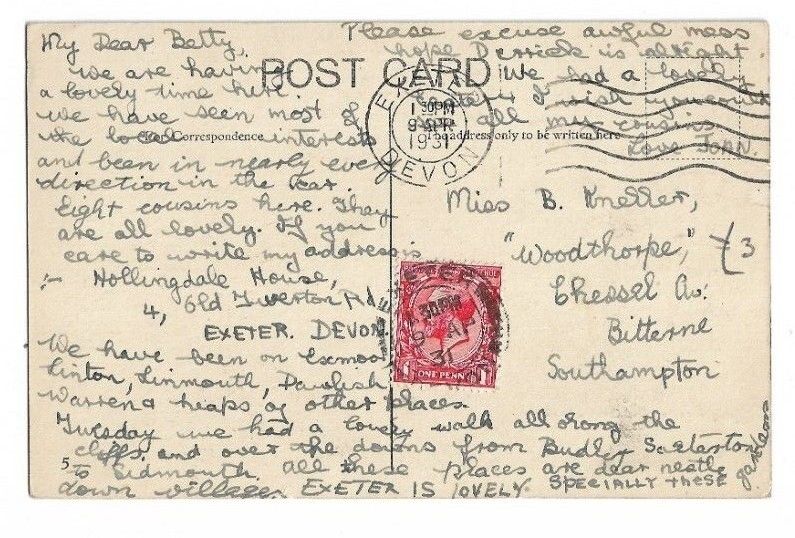 My Dear Betty,
We are having
a lovely time here.
We have seen most of
the local interests
and been in nearly every
direction in the car.
Eight cousins here. They
are all lovely. If you
care to write my address is
:- Hollingdale House,
4, Old Tiverton Rd
EXETER. DEVON.
We have been on Exmoor
Linton, Linmouth, Dawlish
Warren & heaps of other places.
Tuesday we had a lovely walk all along the
cliffs, and over the downs from Budley Salterton
to Sidmouth. All these places are dear nestle
down villages. EXETER IS LOVELY. SPECIALLY THESE
gardens
5
Please excuse awful mess
hope Derrick is alright
We had a lovely
I wish you could
all my cousins
Love JOAN.
POST CARD
For Correspondence
The address only to be written here
EXETER
1 30PM
9 AP
1931
DEVON
Miss B. Kneller,
"Woodthorpe,"
Chessel Av:
Bitterne
Southampton
EXETER
1.30PM
9 AP
31
ONE PENNY
1